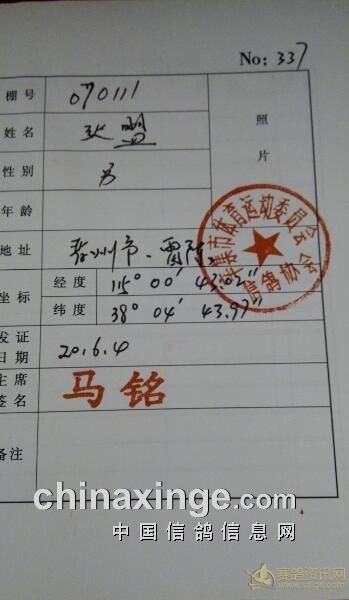 No: 337
棚号 070111
照片
姓名 张盟
性别 男
年龄
地址 晋州市、雷陈
辛集市体育运动委员会
信鸽协会
坐标
经度 115° 00′ 43.02″
纬度 38° 04′ 43.97″
发证
日期 2016.4
主席
签名 马铭
备注
chinaxinge.com
中国信鸽信息网
赛鸽资讯网
www.saige.com